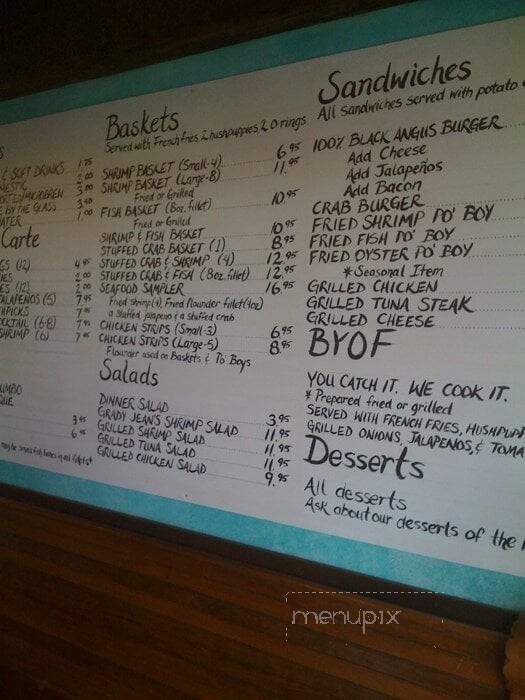 & SOFT DRINKS 1.75
2.00
3.00
BY THE GLASS 3.50
WATER 1.00
Carte
(12) 4.95
2.00
(12) 2.00
JALAPEÑOS (5) 7.95
7.95
(6-8) 7.95
SHRIMP (6) 7.95
3.95
6.95
Baskets
Served with French fries 2 hushpuppies 2 O rings
SHRIMP BASKET (Small-4) 6.95
SHRIMP BASKET (Large-8) 11.95
Fried or Grilled
FISH BASKET (8oz. fillet) 10.95
Fried or Grilled
SHRIMP & FISH BASKET 10.95
STUFFED CRAB BASKET (1) 8.95
STUFFED CRAB & SHRIMP (4) 12.95
STUFFED CRAB & FISH (8oz. fillet) 12.95
SEAFOOD SAMPLER 16.95
Fried shrimp(4), Fried flounder fillet(4oz)
a stuffed jalapeno & a stuffed crab
CHICKEN STRIPS (Small-3) 6.95
CHICKEN STRIPS (Large-5) 8.95
Flounder used on Baskets & Po Boys
Salads
DINNER SALAD 3.95
GRADY JEAN'S SHRIMP SALAD 11.95
GRILLED SHRIMP SALAD 11.95
GRILLED TUNA SALAD 11.95
GRILLED CHICKEN SALAD 9.95
Sandwiches
All sandwiches served with potato
100% BLACK ANGUS BURGER
Add Cheese
Add Jalapeños
Add Bacon
CRAB BURGER
FRIED SHRIMP PO' BOY
FRIED FISH PO' BOY
FRIED OYSTER PO' BOY
*Seasonal Item
GRILLED CHICKEN
GRILLED TUNA STEAK
GRILLED CHEESE
BYOF
YOU CATCH IT. WE COOK IT.
*Prepared fried or grilled
SERVED WITH FRENCH FRIES, HUSHPUPP
GRILLED ONIONS, JALAPENOS, & TOMA
Desserts
All desserts
Ask about our desserts of the
menupix